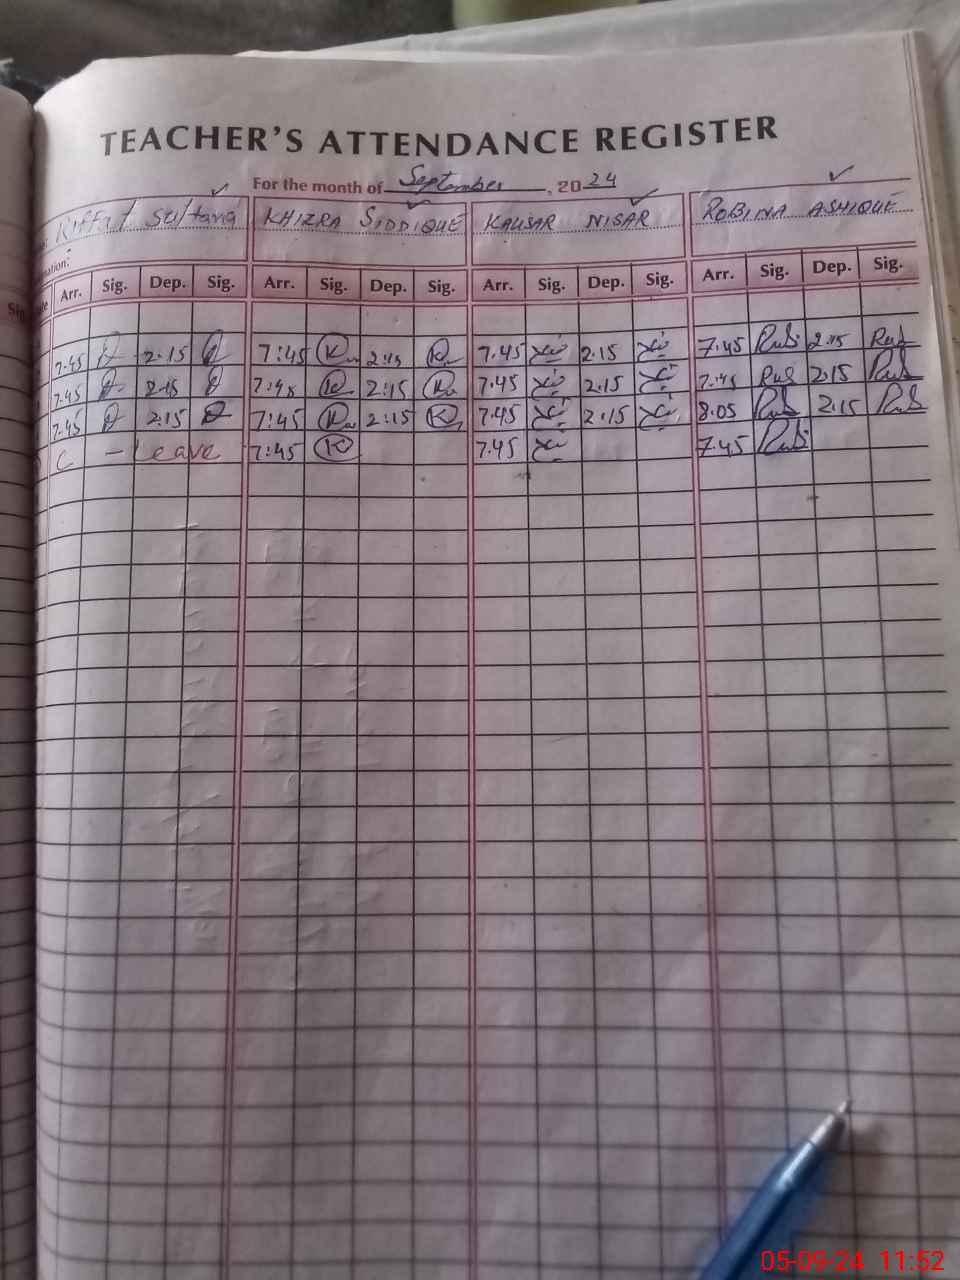 TEACHER'S ATTENDANCE REGISTER
For the month of September, 2024
Riffat Sultana KHIZRA SIDDIQUE KAUSAR NISAR ROBINA ASHIQUE
Arr. Sig. Dep. Sig. Arr. Sig. Dep. Sig. Arr. Sig. Dep. Sig. Arr. Sig. Dep. Sig.
7.45 2.15 7:45 K 2:15 K 7.45 2.15 7.45 Rub 2.15 Rub
7.45 2.15 7:45 K 2:15 K 7.45 2.15 7.45 Rub 2.15 Rub
7.45 2:15 7:45 K 2:15 K 7.45 2.15 8.05 Rub 2.15 Rub
C - Leave 7:45 K 7.45 7.45 Rub
05-09-24 11:52